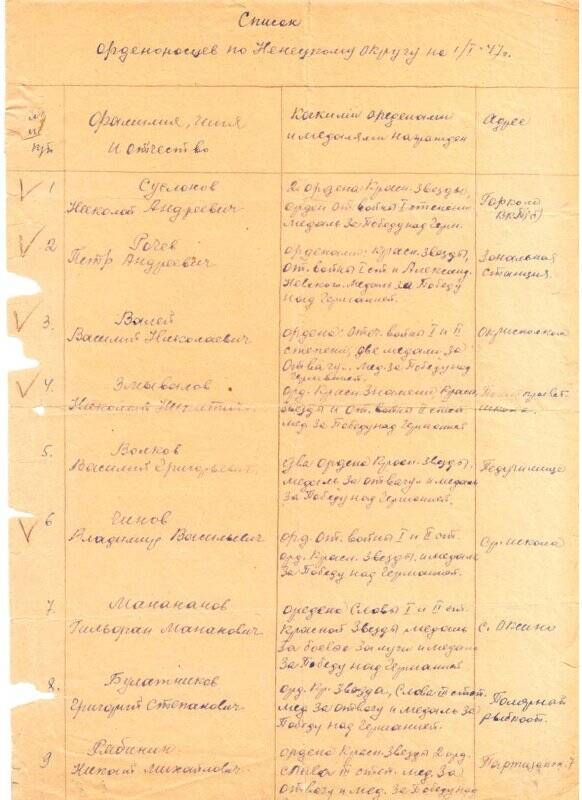 Список
орденоносцев по Ненецкому округу на 1/I-47г.
№№
п/п
Фамилия, имя
и отчество
Какими орденами
и медалями награжден
Адрес
1
Суслонов
Николай Андреевич
2 ордена Красн. Звезды,
орден От. войны I степени
медаль За Победу над Герм.
Горком
ВКП(б)
2
Рочев
Петр Андреевич
орденами: Красн. Звезды,
От. войны I ст и Александ.
Невского. Медаль За Победу
над Германией.
Зональная
станция
3.
Валей
Василий Николаевич
ордена: Отеч. войны I и II
степени, две медали За
Отвагу. Мед. За Победу над
Германией.
Окрисполком
4.
Николай
орд. Красн. Знамени, Красн.
Звезды и От. войны II степ
мед. За Победу над Германией
школа.
5.
Волков
Василий Григорьевич
Два Ордена Красн. Звезды,
медаль За отвагу и медаль
За Победу над Германией.
Педучилище
6
Чинов
Владимир Васильевич
орд. От. войны I и II ст.
орд. Красн. Звезды и медаль
За Победу над Германией.
Ср. школа
7.
Манананов
Гильфан Манакович
ордена Славы I и II ст.
Красной Звезды медаль
За боевые заслуги и медаль
За Победу над Германией
с. Оксино
8.
Булатников
Григорий Степанович
орд. Кр. Звезда, Слава III степ.
Мед За отвагу и медаль За
Победу над Германией.
Полярная
9
Рябинин
Михайлович
ордена Красн. Звезды 2 орд.
Слава III степ. мед. За
отвагу и мед. За Победу над